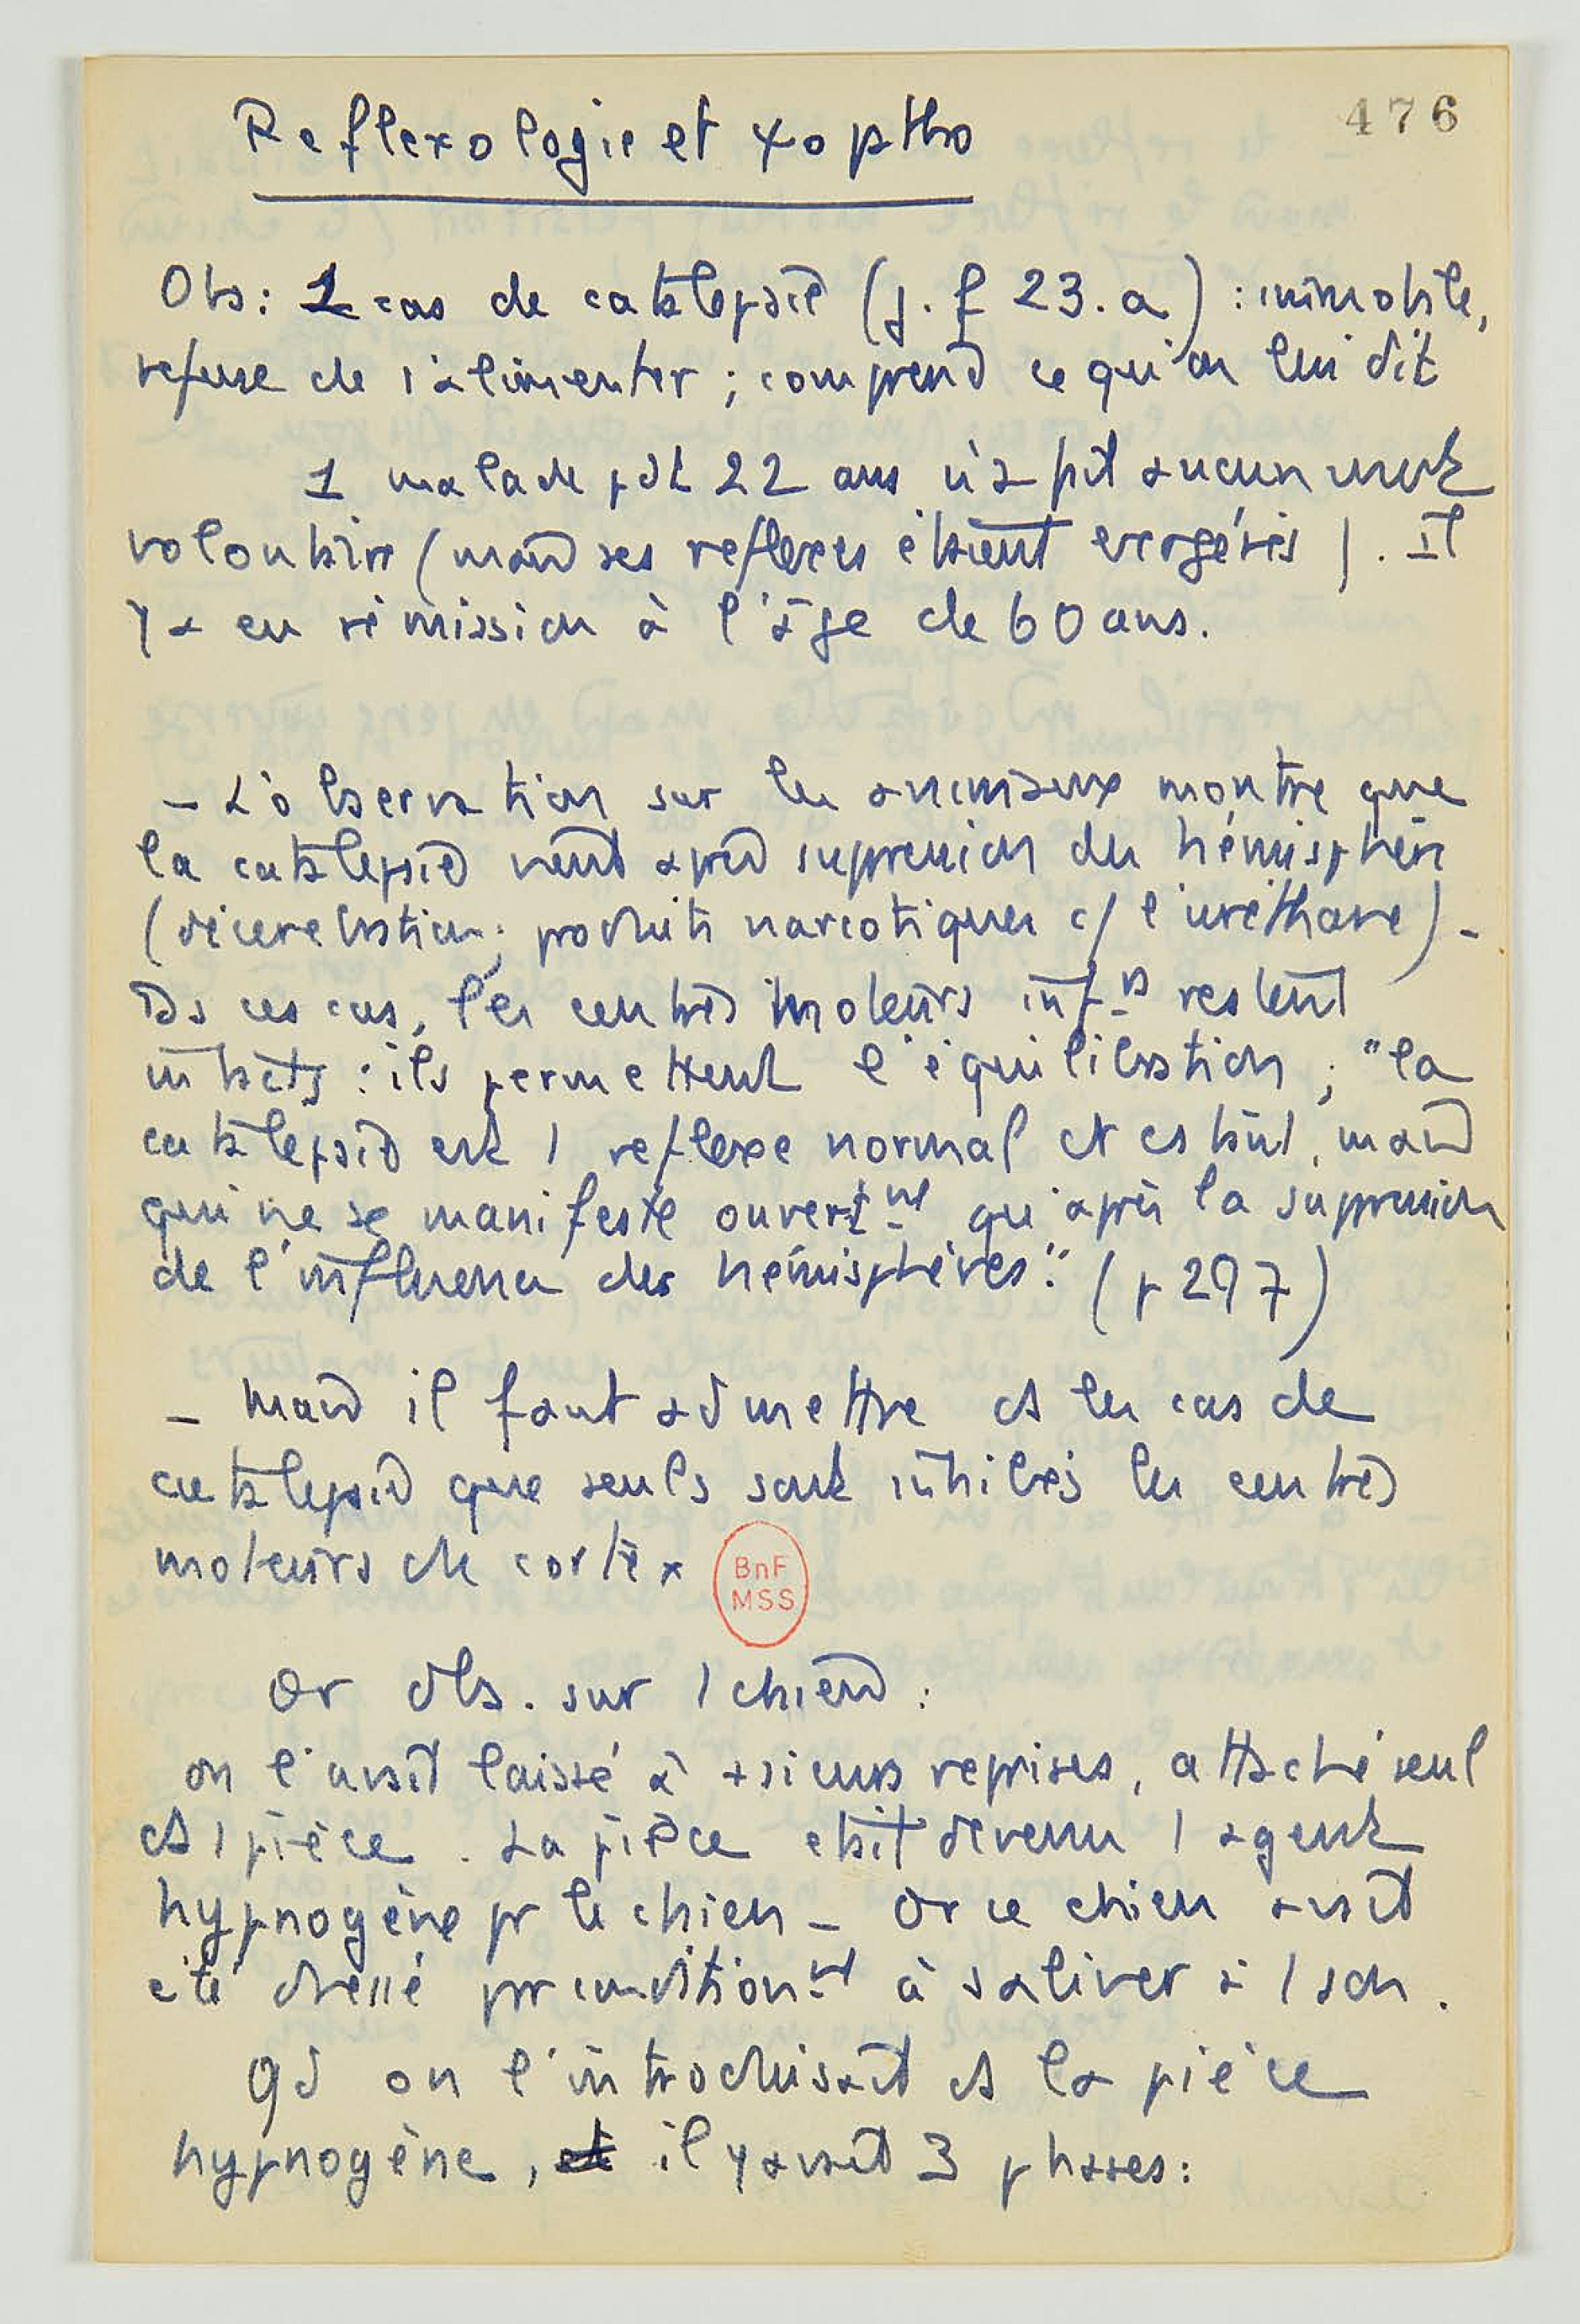 476
Reflexologie et ψoptho
Obs : 1 cas de catalepsie (j. f 23. a) : immobile,
refuse de s'alimenter ; comprend ce qu'on lui dit
1 malade pdt 22 ans n'a fait aucun mvt
volontaire (mais ses reflexes étaient exagérés). Il
y a eu rémission à l'âge de 60 ans.
– L'observation sur les animaux montre que
la catalepsie vient après supression des hémisphères
(décerebration ; produits narcotiques c/ l'uréthane) –
Ds ces cas, les centres moteurs infrs restent
intacts : ils permettent l'équilibration ; "la
catalepsie est 1 reflexe normal et constant, mais
qui ne se manifeste ouvertnt qu'après la supression
de l'influence des hémisphères." (p 297)
– Mais il faut admettre ds les cas de
catalepsie que seuls sont inhibés les centres
moteurs du cortex
BnF
MSS
Or obs. sur 1 chien :
on l'avait laissé à +sieurs reprises, attaché seul
ds 1 pièce. La pièce était devenu 1 agent
hypnogène pr le chien – Or ce chien avait
été dressé pr conditionnt à saliver à 1 son.
Qd on l'introduisait ds la pièce
hypnogène, et il y avait 3 phases :